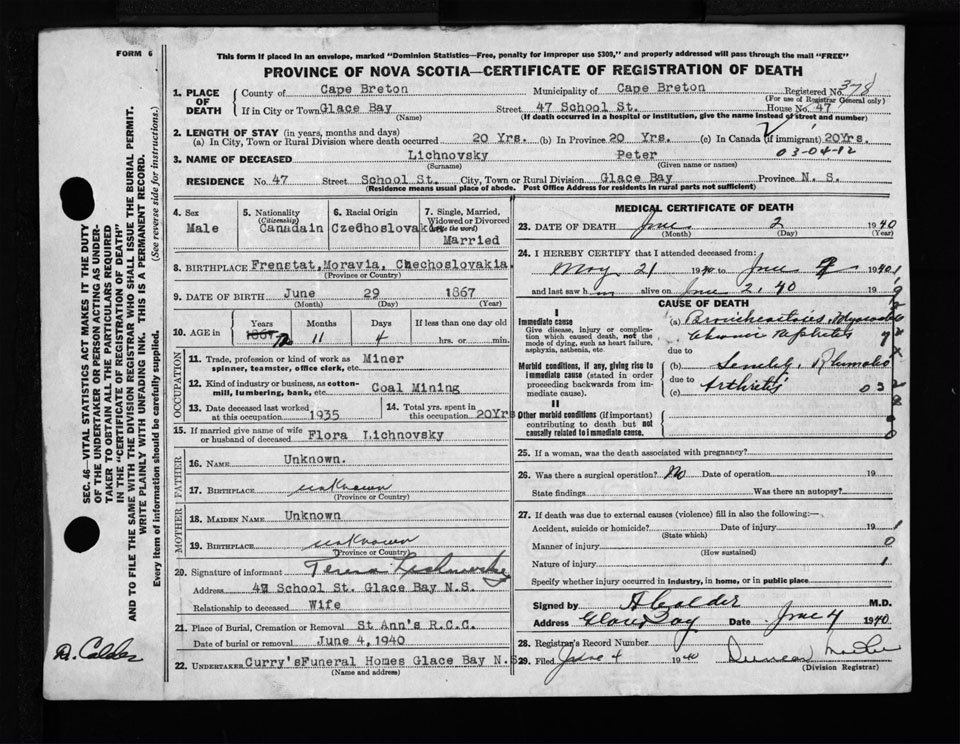 FORM 6
This form if placed in an envelope, marked "Dominion Statistics—Free, penalty for improper use $300," and properly addressed will pass through the mail "FREE"
PROVINCE OF NOVA SCOTIA—CERTIFICATE OF REGISTRATION OF DEATH
1. PLACE OF DEATH
County of Cape Breton Municipality of Cape Breton Registered No. 378
(For use of Registrar General only)
If in City or Town Glace Bay Street 47 School St. House No. 47
(Name) (If death occurred in a hospital or institution, give the name instead of street and number)
2. LENGTH OF STAY (in years, months and days)
(a) In City, Town or Rural Division where death occurred 20 Yrs. (b) In Province 20 Yrs. (c) In Canada (if immigrant) 20Yrs.
03-04-82
3. NAME OF DECEASED Lichnovsky Peter
(Surname) (Given name or names)
RESIDENCE No. 47 Street School St. City, Town or Rural Division Glace Bay Province N. S.
(Residence means usual place of abode. Post Office Address for residents in rural parts not sufficient)
4. Sex Male
5. Nationality (Citizenship) Canadain
6. Racial Origin Czechoslovakia
7. Single, Married, Widowed or Divorced (write the word) Married
8. BIRTHPLACE Frenstat, Moravia, Czechoslovakia.
(Province or Country)
9. DATE OF BIRTH June 29 1867
(Month) (Day) (Year)
10. AGE in Years Months Days If less than one day old
1867 72 11 4 hrs. or min.
OCCUPATION
11. Trade, profession or kind of work as spinner, teamster, office clerk, etc. Miner
12. Kind of industry or business, as cotton-mill, lumbering, bank, etc. Coal Mining
13. Date deceased last worked at this occupation 1935
14. Total yrs. spent in this occupation 20Yrs
15. If married give name of wife or husband of deceased Flora Lichnovsky
FATHER
16. NAME Unknown.
17. BIRTHPLACE unknown
(Province or Country)
MOTHER
18. MAIDEN NAME Unknown
19. BIRTHPLACE unknown
(Province or Country)
20. Signature of informant Teresa Lichnovsky
Address 47 School St. Glace Bay N.S.
Relationship to deceased Wife
21. Place of Burial, Cremation or Removal St Ann's R.C.C.
Date of burial or removal June 4, 1940
22. UNDERTAKER Curry'sFuneral Homes Glace Bay N.S
(Name and address)
MEDICAL CERTIFICATE OF DEATH
23. DATE OF DEATH June 2 1940
(Month) (Day) (Year)
24. I HEREBY CERTIFY that I attended deceased from:
May 21 1940 to June 1940
and last saw h m alive on June 2, 40 19
CAUSE OF DEATH
I
Immediate cause
Give disease, injury or complication which caused death, not the mode of dying, such as heart failure, asphyxia, asthenia, etc.
(a)
Chronic
due to
Morbid conditions, if any, giving rise to immediate cause (stated in order proceeding backwards from immediate cause).
(b) Senility,
due to
(c) Arthritis
032
II
Other morbid conditions (if important) contributing to death but not causally related to immediate cause.
25. If a woman, was the death associated with pregnancy?
26. Was there a surgical operation? No Date of operation 19
State findings Was there an autopsy?
27. If death was due to external causes (violence) fill in also the following:—
Accident, suicide or homicide? Date of injury 19
(State which)
Manner of injury 0
(How sustained)
Nature of injury 1
Specify whether injury occurred in industry, in home, or in public place
Signed by A Calder M.D.
Address Glace Bay Date June 4 1940
28. Registrar's Record Number
29. Filed June 4 1940 Duncan
(Division Registrar)
SEC. 46—VITAL STATISTICS ACT MAKES IT THE DUTY
OF THE UNDERTAKER OR PERSON ACTING AS UNDER-
TAKER TO OBTAIN ALL THE PARTICULARS REQUIRED
IN THE "CERTIFICATE OF REGISTRATION OF DEATH"
AND TO FILE THE SAME WITH THE DIVISION REGISTRAR WHO SHALL ISSUE THE BURIAL PERMIT.
WRITE PLAINLY WITH UNFADING INK. THIS IS A PERMANENT RECORD.
Every item of information should be carefully supplied. (See reverse side for instructions.)
Dr. Calder